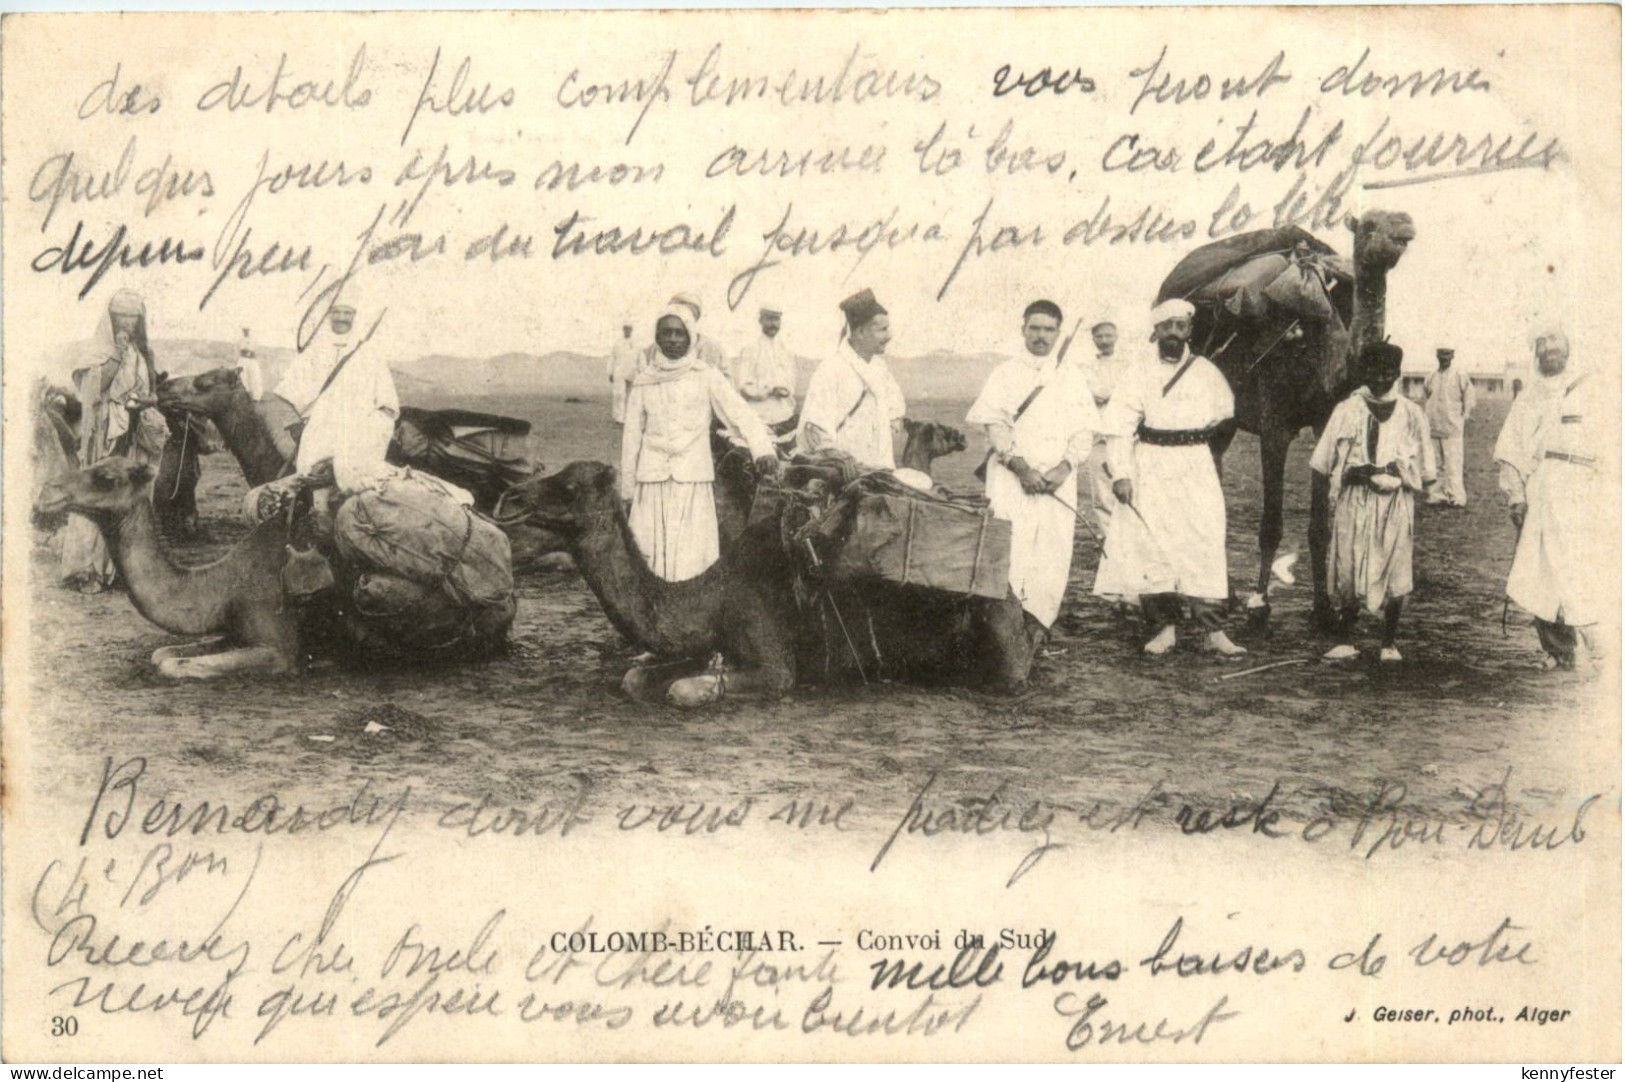 des details plus complementaires vous seront donnés
quelques jours après mon arrivée là bas. Car étant fourrier
depuis peu, j'ai du travail jusque par dessus la tête
Bernardy dont vous me parliez est reste à Bou-Denib
(4e Bon)
COLOMB-BÉCHAR. — Convoi du Sud
Recevez cher Oncle et chère tante mille bons baisers de votre
neveu qui espère vous revoir bientôt Ernest
30
J. Geiser, phot., Alger
kennyfester